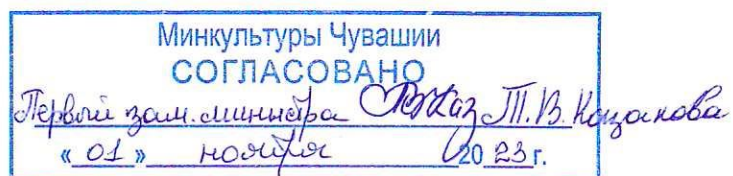 Минкультуры Чувашии
СОГЛАСОВАНО
Первый зам. министра Т.В. Казакова
« 01 » ноября 20 23 г.